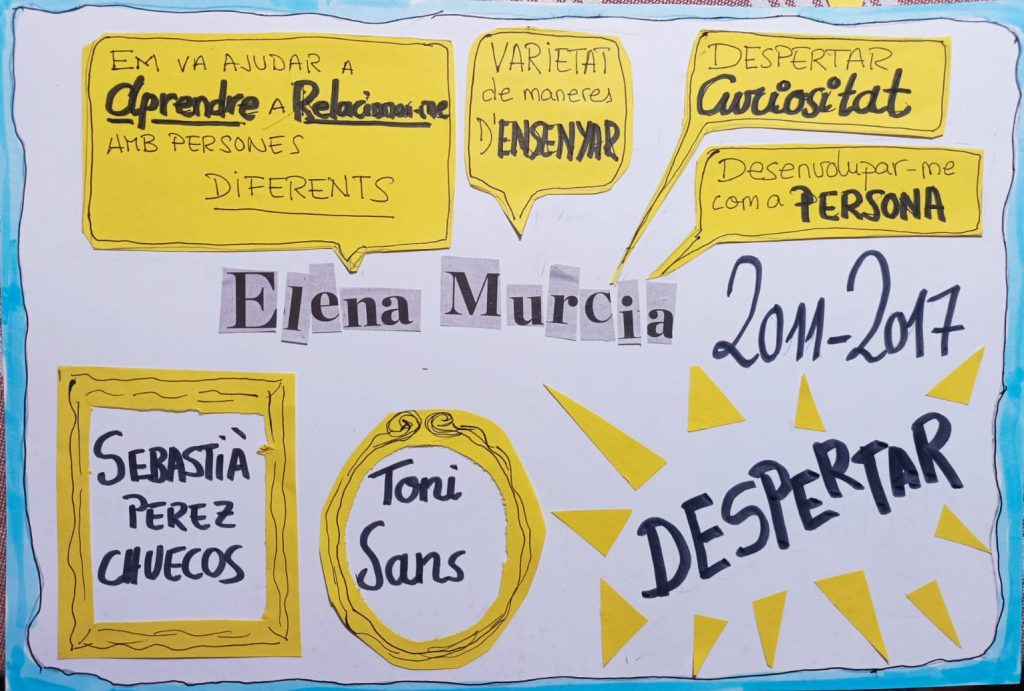 EM VA AJUDAR A
aprendre A Relacionar-me
AMB PERSONES
DIFERENTS
VARIETAT
de maneres
D'ENSENYAR
DESPERTAR
Curiositat
Desenvolupar-me
com a PERSONA
Elena Murcia
2011-2017
SEBASTIÀ
PEREZ
CHUECOS
Toni
Sans
DESPERTAR